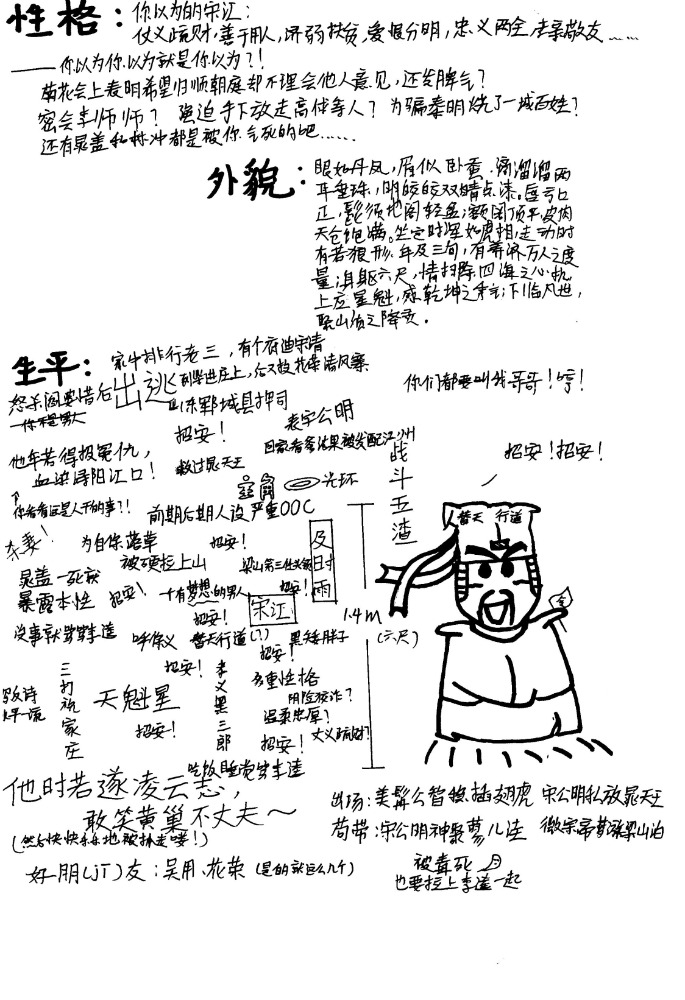 性格：你以为的宋江：
仗义疏财，善于用人，济弱扶贫，爱恨分明，忠义两全，法亲敬友……
——你以为你以为就是你以为？！
菊花会上表明希望归顺朝庭却不理会他人意见，还发脾气？
密会李师师？强迫手下放走高俅等人？为骗秦明烧了一城百姓？
还有晁盖和林冲都是被你气死的吧……
外貌：眼如丹凤，眉似卧蚕，滴溜溜两
耳垂珠，明皎皎双睛点漆。唇方口
正，髭须地阁轻盈；额阔顶平，皮肉
天仓饱满。坐定时浑如虎相，走动时
有若狼形。年及三旬，有养济万人之度
量；身躯六尺，怀扫除四海之心机，
上应星魁，感乾坤之秀气；下临凡世，
聚山岳之降灵。
生平：家中排行老三，有个弟弟宋清
怒杀阎婆惜后出逃到柴进庄上，后又投花荣清风寨
山东郓城县押司
你们都要叫我哥哥！哼！
招安！
表字公明
他年若得报冤仇，
血染浔阳江口！
救过晁天王
回家看爹结果被发配江州
战斗五渣
招安！招安！
光环
你看看这是人干的事？！
前期后期人设严重OOC
替天 行道
为自保落草
招安！
及时雨
被硬拉上山
梁山第三任头领
晁盖一死就
暴露本性
招安！
十有梦想的男人
招安！
宋江
1.4m
(六尺)
招安！
没事就穿李逵
呼保义
替天行道(?)
黑矮胖子
招安！
招安！
三打祝家庄
天魁星
孝义黑三郎
多重性格
阴险狡诈？
温柔忠厚？
招安！
招安！
仗义疏财？
写反诗
吃饭睡觉穿李逵
他时若遂凌云志，
敢笑黄巢不丈夫～
(然后快快乐乐地被抓走喽！)
好朋(JT)友：吴用、花荣 (是的就这么几个)
出场：美髯公智稳插翅虎 宋公明私放晁天王
苟带：宋公明神聚蓼儿洼 徽宗帝梦游梁山泊
被毒死
也要拉上李逵一起